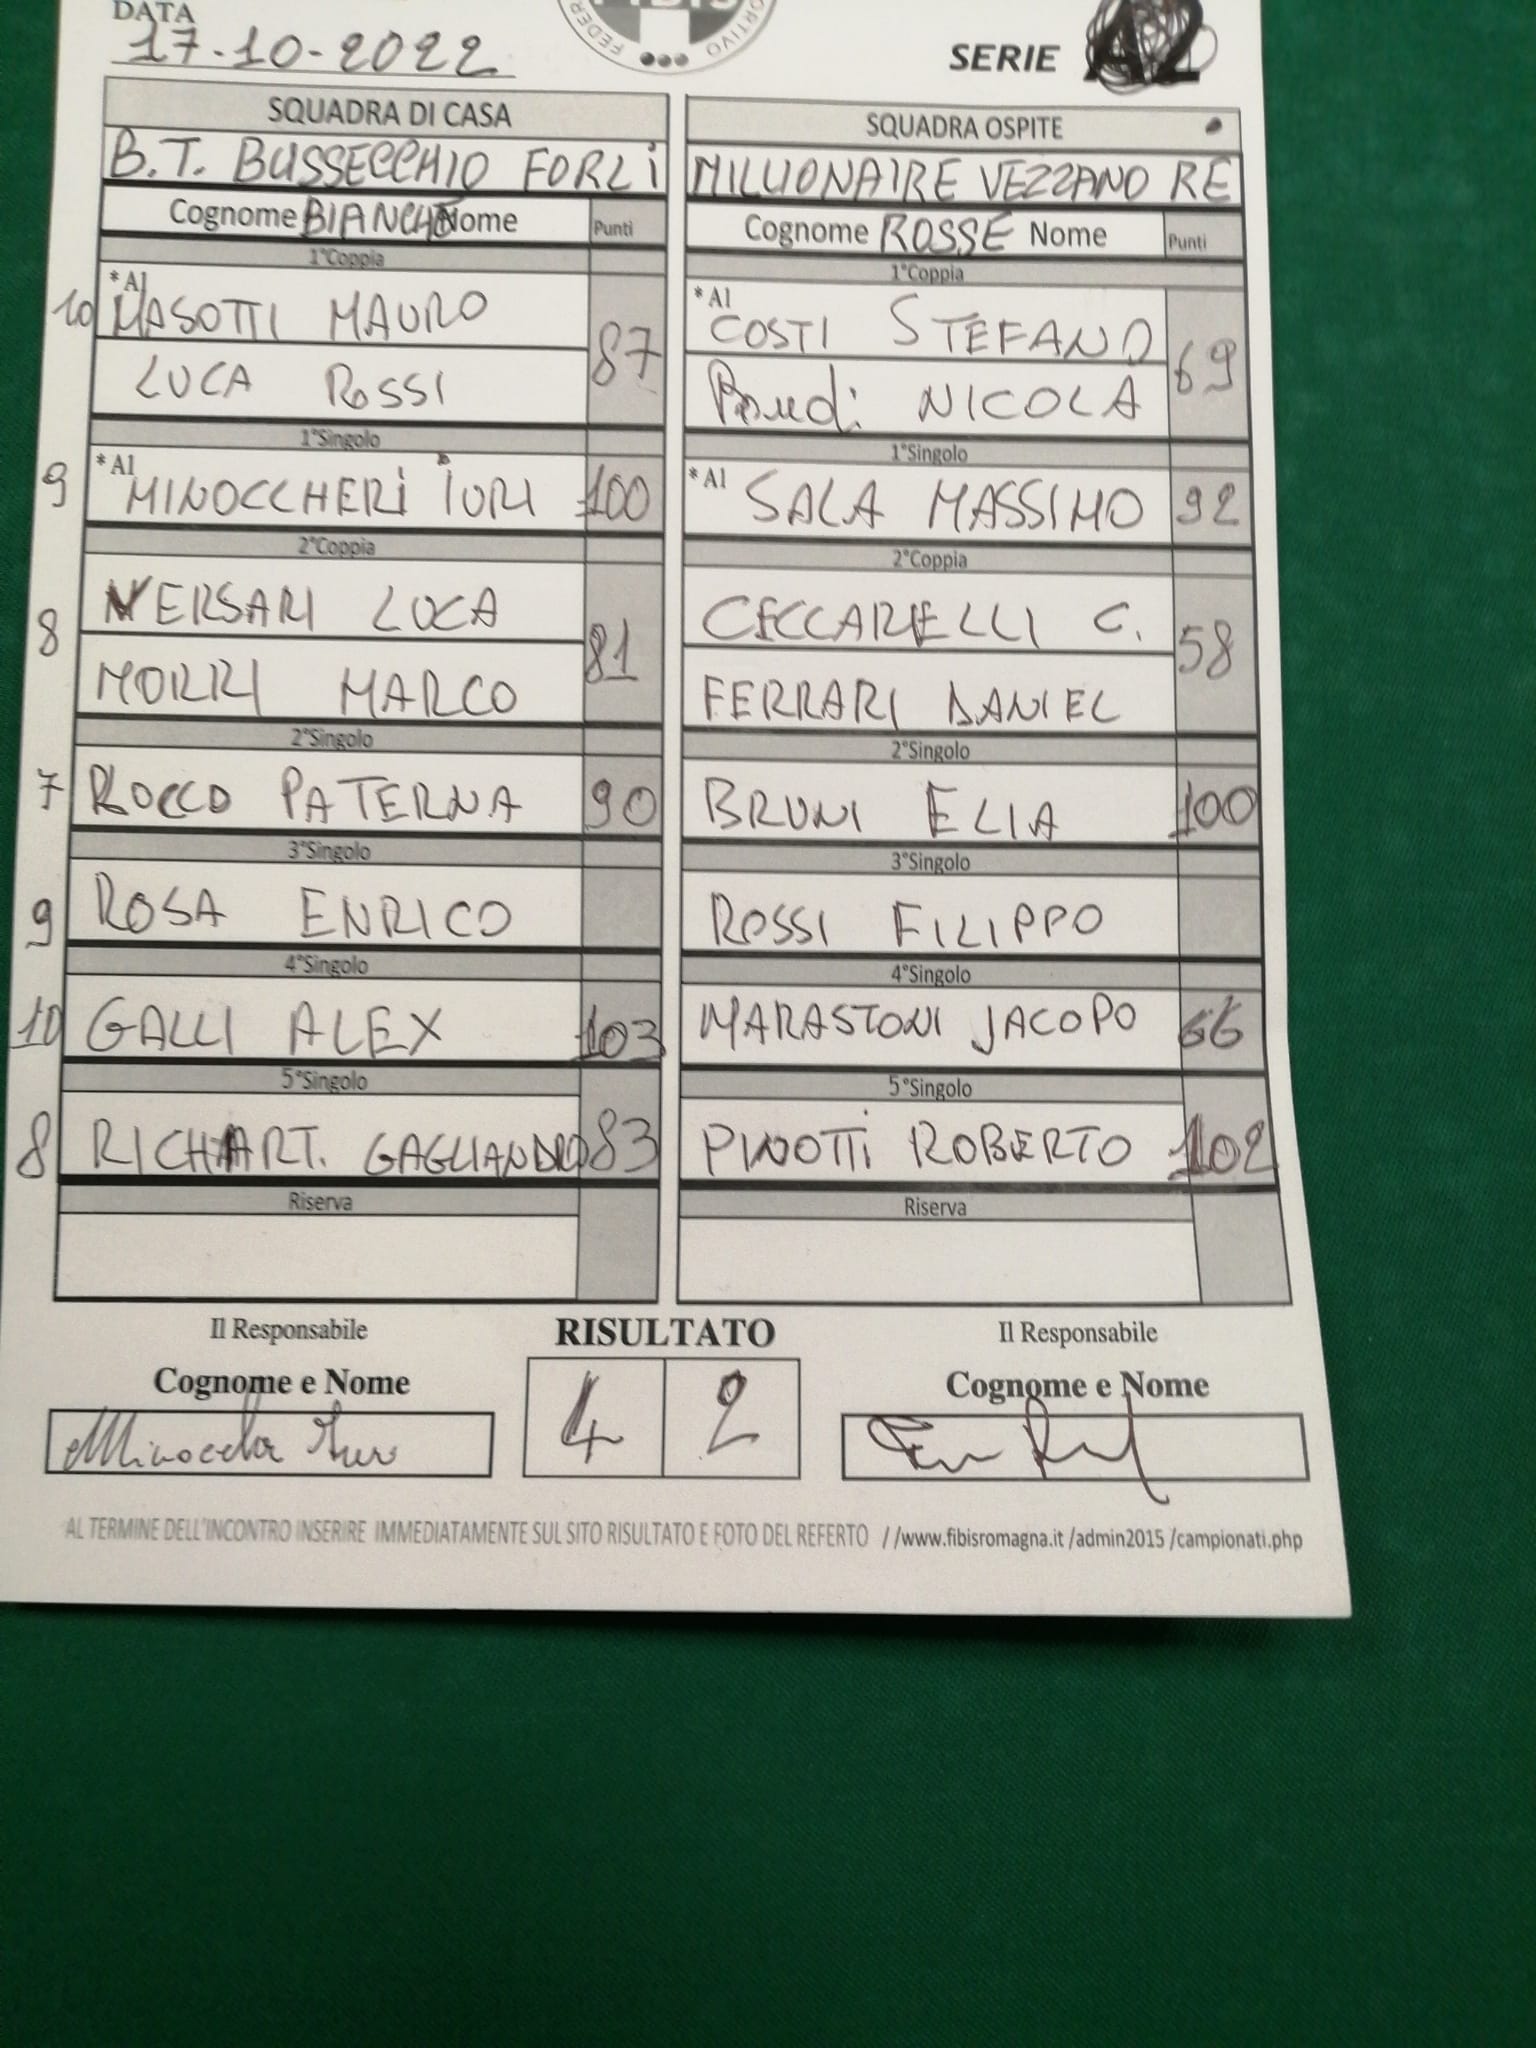 DATA
17-10-2022
SERIE
SQUADRA DI CASA
B.T. BUSSECCHIO FORLI
Cognome BIANCHE Nome Punti
1°Coppia
*Al
10 MASOTTI MAURO 87
LUCA ROSSI
1°Singolo
*Al
9 MINOCCHERI IURI 100
2°Coppia
8 VERSARI LUCA 81
MORRI MARCO
2°Singolo
7 ROCCO PATERNA 90
3°Singolo
9 ROSA ENRICO
4°Singolo
10 GALLI ALEX 103
5°Singolo
8 RICHART. GAGLIANDRO 83
Riserva
SQUADRA OSPITE
MILLIONAIRE VEZZANO RE
Cognome ROSSE Nome Punti
1°Coppia
*Al
COSTI STEFANO 69
NICOLA
1°Singolo
*Al
SALA MASSIMO 92
2°Coppia
CECCARELLI C. 58
FERRARI DANIEL
2°Singolo
BRUNI ELIA 100
3°Singolo
ROSSI FILIPPO
4°Singolo
MARASTONI JACOPO 66
5°Singolo
PINOTTI ROBERTO 102
Riserva
Il Responsabile
Cognome e Nome
RISULTATO
4 2
Il Responsabile
Cognome e Nome
AL TERMINE DELL'INCONTRO INSERIRE IMMEDIATAMENTE SUL SITO RISULTATO E FOTO DEL REFERTO //www.fibisromagna.it /admin2015 /campionati.php